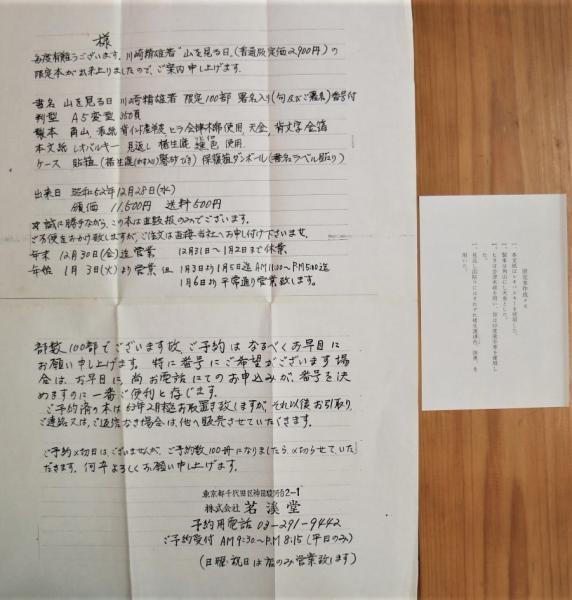 様
毎度有難うございます。川崎精雄著"山を見る日"(普通版定価2,900円)の
限定本が出来上りましたので、ご案内申し上げます。
書名 山を見る日 川崎精雄著 限定100部 署名入り(句及びご署名)番号付
判型 A5変型 350頁
製本 角山、表紙 背インド産羊皮 ヒラ会津木綿使用、天金、背文字金箔
本文紙 レオバルキー 見返し 楮生漉 使用、
ケース 貼箱 保護箱ダンボール(書名ラベル貼り)
出来日 昭和52年12月28日(水)
頒価 11,500円 送料500円
誠に勝手ながら、この本は直販扱のみでございます。
ご不便をおかけ致しますが、ご注文は直接当社へお申し付け下さいませ。
年末 12月30日(金)迄営業 12月31日~1月2日まで休業
年始 1月3日(火)より営業 但 1月3日より1月5日迄AM11:00~PM5:00迄
1月6日より平常通り営業致します。
部数100部でございます故、ご予約はなるべくお早目に
お願い申し上げます。特に番号にご希望がございます場
合は、お早目に、尚お電話にてのお申込みが、番号を決
めますのに一番ご便利と存じます。
ご予約済の本は53年2月迄お取置き致しますが、それ以後お引取り、
ご連絡又は、ご返信なき場合は、他へ販売させていただきます。
ご予約〆切日は、ございませんが、ご予約数100冊になりましたら、〆切らせていた
だきます。何卒よろしくお願い申し上げます。
東京都千代田区神田駿河台2-1
株式会社 茗溪堂
予約用電話 03-291-9442
ご予約受付 AM9:30~PM8:15(平日のみ)
(日曜・祝日は店のみ営業致します)
限定本作成メモ
一、本文紙はレオバルキーを使用した。
一、製本は角山にし天金とした。
一、ヒラは会津木綿を用い、背は印度産羊革を使用し